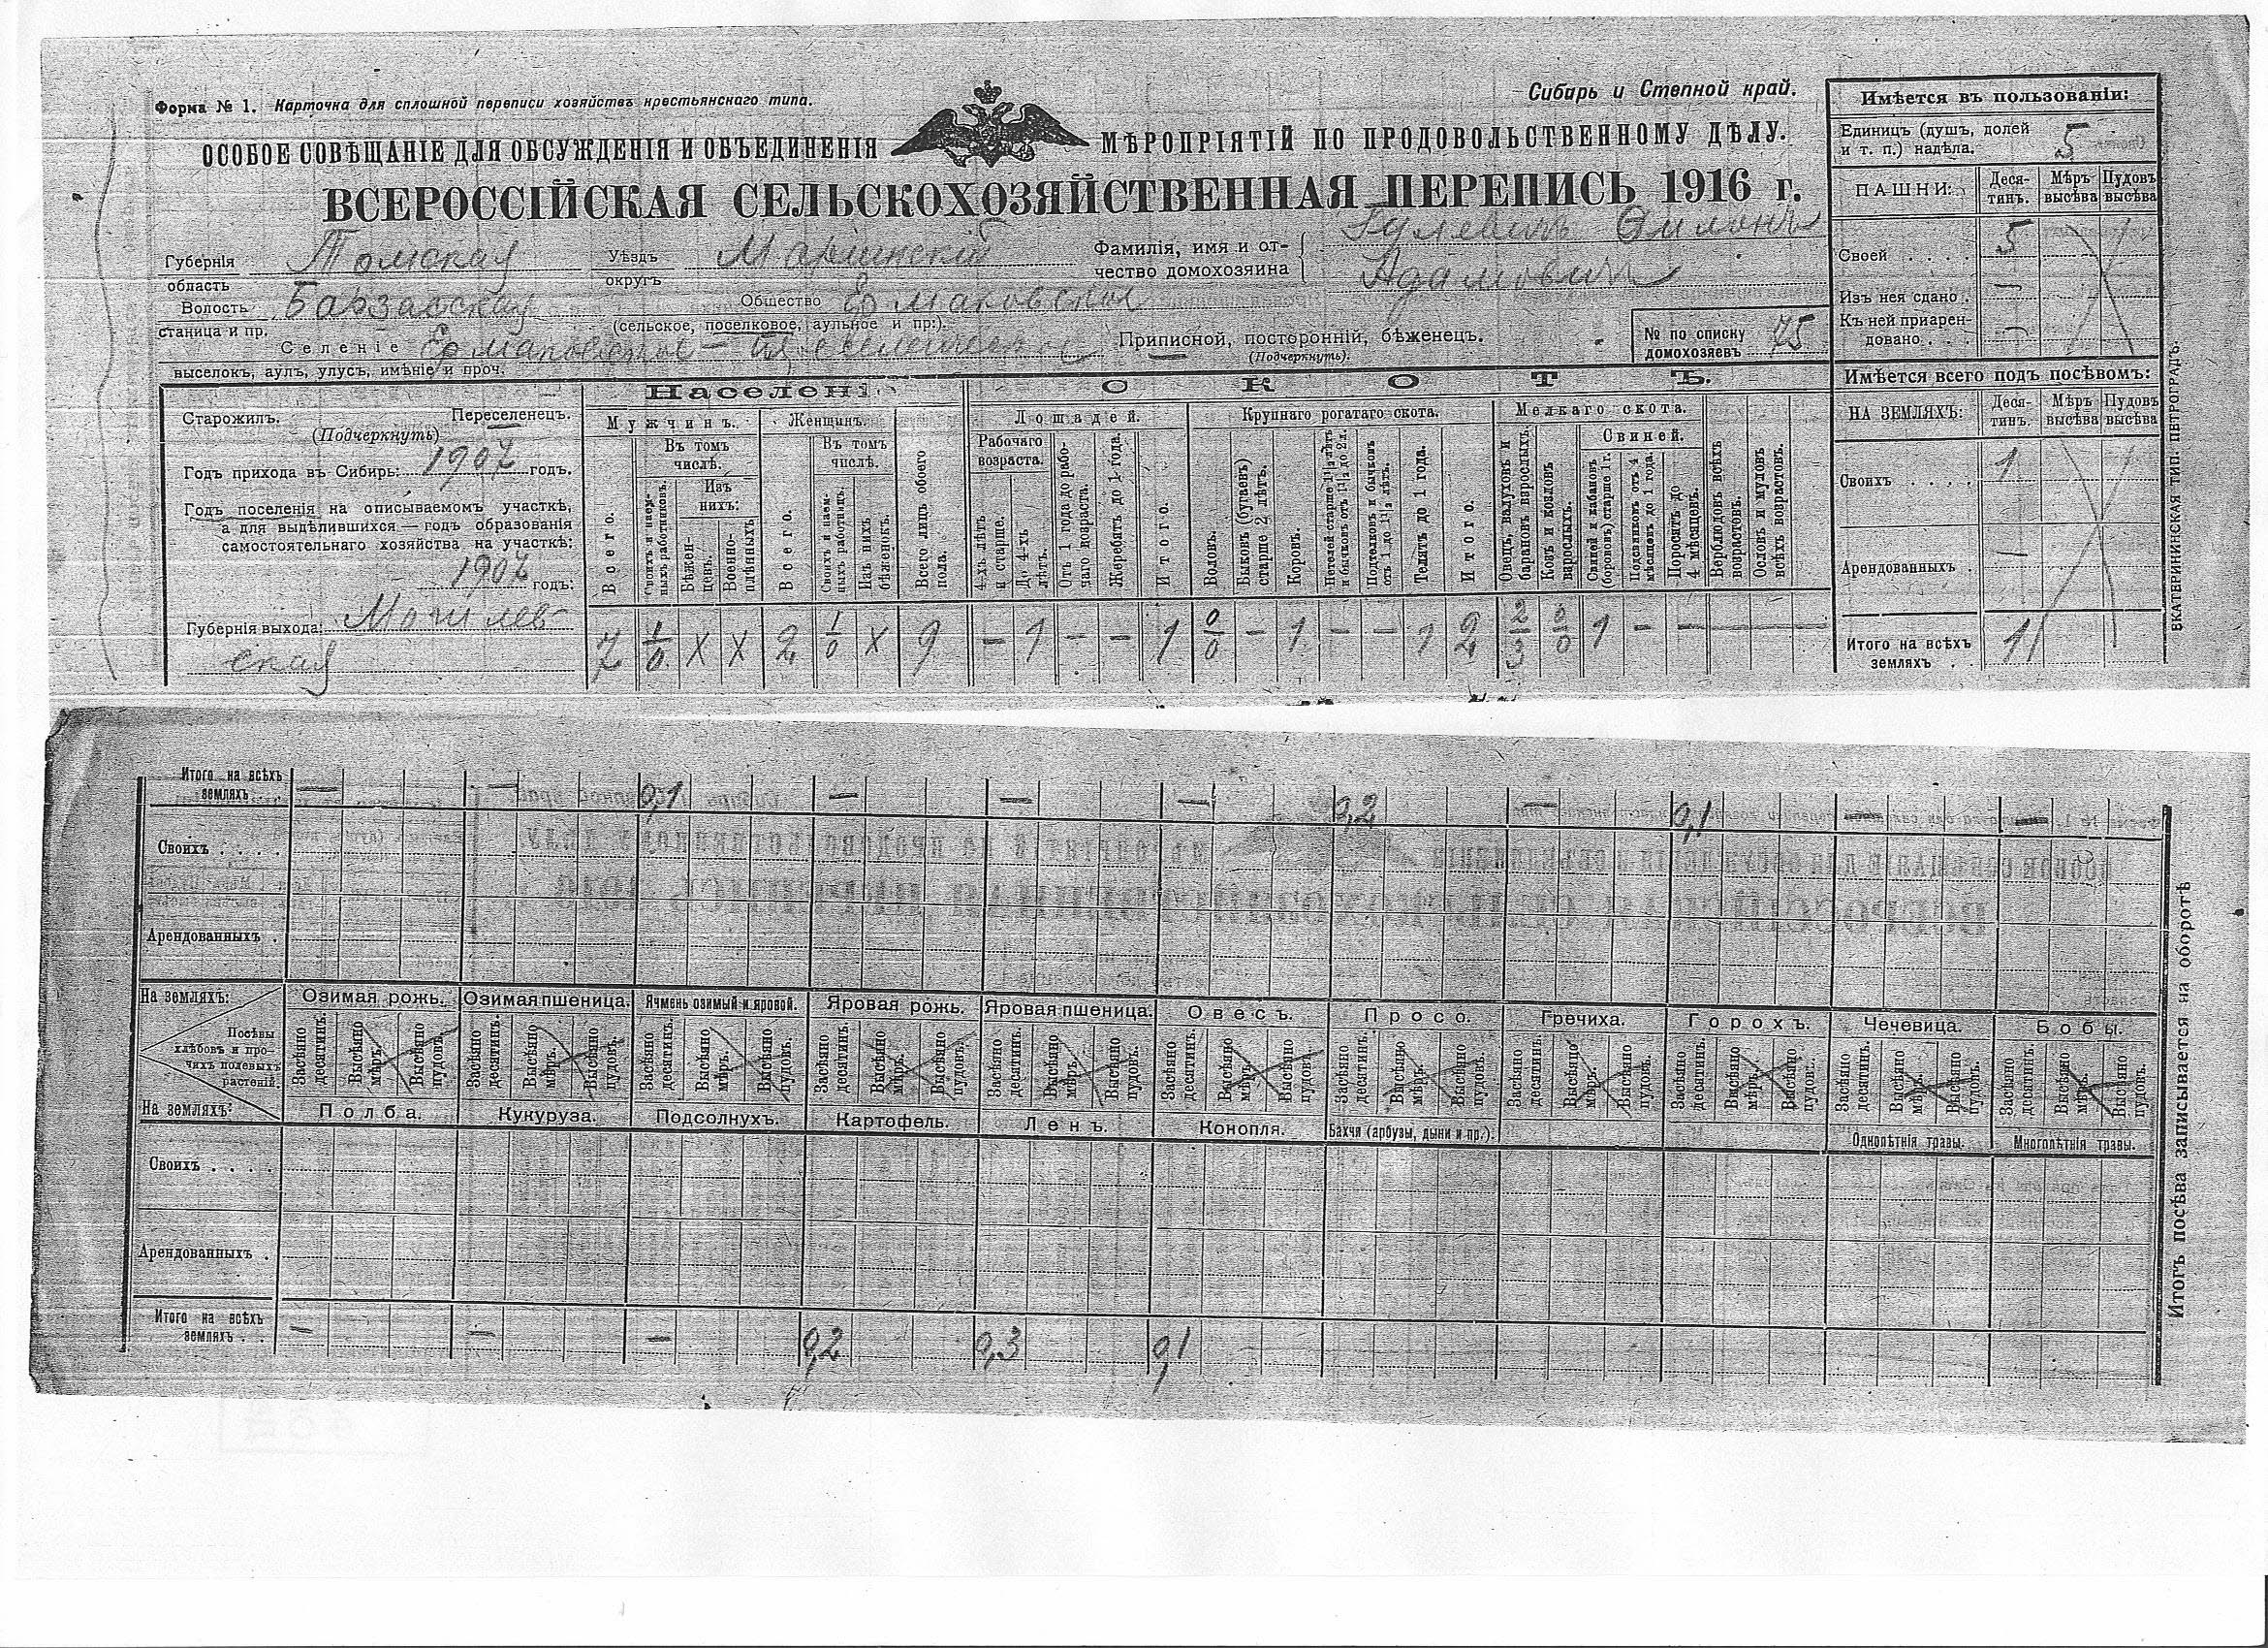 Форма № 1. Карточка для сплошной переписи хозяйствъ крестьянскаго типа.
Сибирь и Степной край.
ОСОБОЕ СОВѢЩАНІЕ ДЛЯ ОБСУЖДЕНІЯ И ОБЪЕДИНЕНІЯ МѢРОПРІЯТІЙ ПО ПРОДОВОЛЬСТВЕННОМУ ДѢЛУ.
ВСЕРОССІЙСКАЯ СЕЛЬСКОХОЗЯЙСТВЕННАЯ ПЕРЕПИСЬ 1916 г.
Губернія область Томская
Уѣздъ округъ Маріинскій
Фамилія, имя и отчество домохозяина
Адамовичъ
Волость станица и пр. Барзасская
Общество Ермаковское
(сельское, поселковое, аульное и пр:).
Селеніе Ермаковское
выселокъ, аулъ, улусъ, имѣніе и проч.
Приписной, посторонній, бѣженецъ.
(Подчеркнуть).
№ по списку домохозяевъ 75
Старожилъ. Переселенецъ.
(Подчеркнуть)
Годъ прихода въ Сибирь: 1907 годъ.
Годъ поселенія на описываемомъ участкѣ,
а для выдѣлившихся — годъ образованія
самостоятельнаго хозяйства на участкѣ:
годъ:
Губернія выхода: Могилев-
ская
Населені
Мужчинъ.
Всего.
Въ томъ числѣ.
Своихъ и наемныхъ работниковъ.
Изъ нихъ:
Бѣженцевъ.
Военноплѣнныхъ.
Женщинъ.
Всего.
Въ томъ числѣ.
Своихъ и наемныхъ работниц.
Изъ нихъ бѣженокъ.
Всего лицъ обоего пола.
СКОТЪ.
Лошадей.
Рабочаго возраста.
4-хъ лѣтъ и старше.
До 4-хъ лѣтъ.
Отъ 1 года до рабочаго возраста.
Жеребятъ до 1 года.
Итого.
Крупнаго рогатаго скота.
Воловъ.
Быковъ (бугаевъ) старше 2 лѣтъ.
Коровъ.
Нетелей старше 1½ лѣтъ и бычковъ отъ 1½ до 2 л.
Подтелковъ и бычковъ отъ 1 до 1½ лѣтъ.
Телятъ до 1 года.
Итого.
Мелкаго скота.
Овецъ, валуховъ и барановъ взрослыхъ.
Козъ и козловъ взрослыхъ.
Свиней.
Свиней и кабановъ (борововъ) старше 1 г.
Подсвинковъ отъ 4 мѣсяцевъ до 1 года.
Поросятъ до 4 мѣсяцевъ.
Верблюдовъ всѣхъ возрастовъ.
Ословъ и муловъ всѣхъ возрастовъ.
7 1/0 X X 2 1/0 X 9 — 1 — — 1 0/0 — 1 — — 1 2 2/3 0/0 1 — —
Имѣется въ пользованіи:
Единицъ (душъ, долей и т. п.) надѣла. 5
ПАШНИ: Десятин. Мѣръ высѣва Пудовъ высѣва
Своей . . . . 5
Изъ нея сдано . —
Къ ней приарендовано. . . —
Имѣется всего подъ посѣвомъ:
НА ЗЕМЛЯХЪ: Десятин. Мѣръ высѣва Пудовъ высѣва
Своихъ . . . . 1
Арендованныхъ . —
Итого на всѣхъ земляхъ . . 1
ЕКАТЕРИНИНСКАЯ ТИП. ПЕТРОГРАДЪ.
Итого на всѣхъ земляхъ — — 0,1 — — — 0,2 — 0,1 —
Своихъ . . . .
Арендованныхъ .
На земляхъ:
Озимая рожь. Озимая пшеница. Ячмень озимый и яровой. Яровая рожь. Яровая пшеница. Овесъ. Просо. Гречиха. Горохъ. Чечевица. Бобы.
Посѣвы хлѣбовъ и прочихъ полевыхъ растеній.
Засѣяно десятинъ. Высѣяно мѣръ. Высѣяно пудовъ.
На земляхъ:
Полба. Кукуруза. Подсолнухъ. Картофель. Ленъ. Конопля. Бахчи (арбузы, дыни и пр.). Однолѣтнія травы. Многолѣтнія травы.
Своихъ . . . .
Арендованныхъ .
Итого на всѣхъ земляхъ . . — — — 0,2 0,3 0,1
Итогъ посѣва записывается на оборотѣ